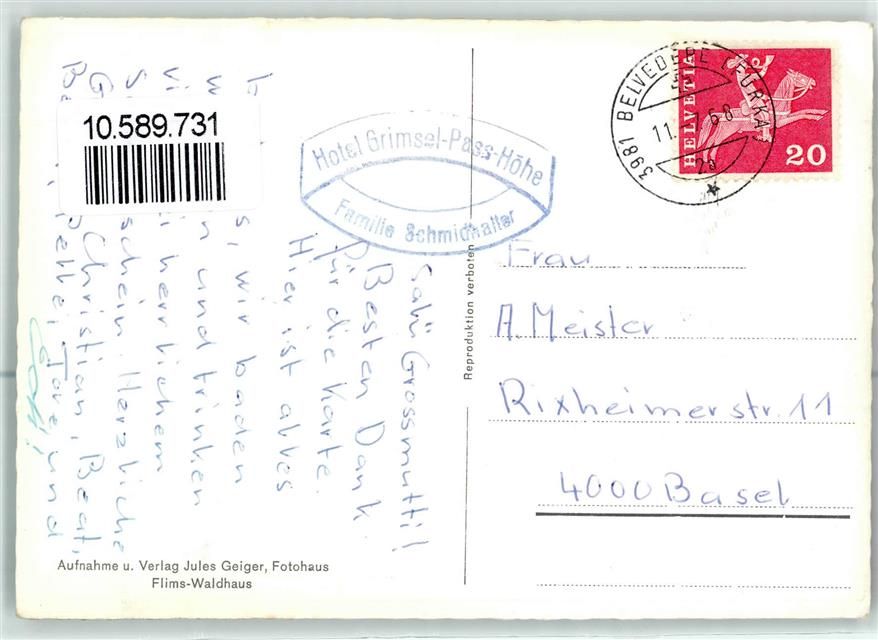 10.589.731
Hotel Grimsel-Pass-Höhe
Familie Schmidhalter
3981 BELVEDERE (FURKA)
11. 68
HELVETIA
20
Salü Grossmutti!
Besten Dank
für die Karte.
Hier ist alles
s, wir baden
n und trinken
i herrlichem
schein. Herzliche
Christian, Beat,
und
Reproduktion verboten
Frau
A. Meister
Rixheimerstr. 11
4000 Basel
Aufnahme u. Verlag Jules Geiger, Fotohaus
Flims-Waldhaus